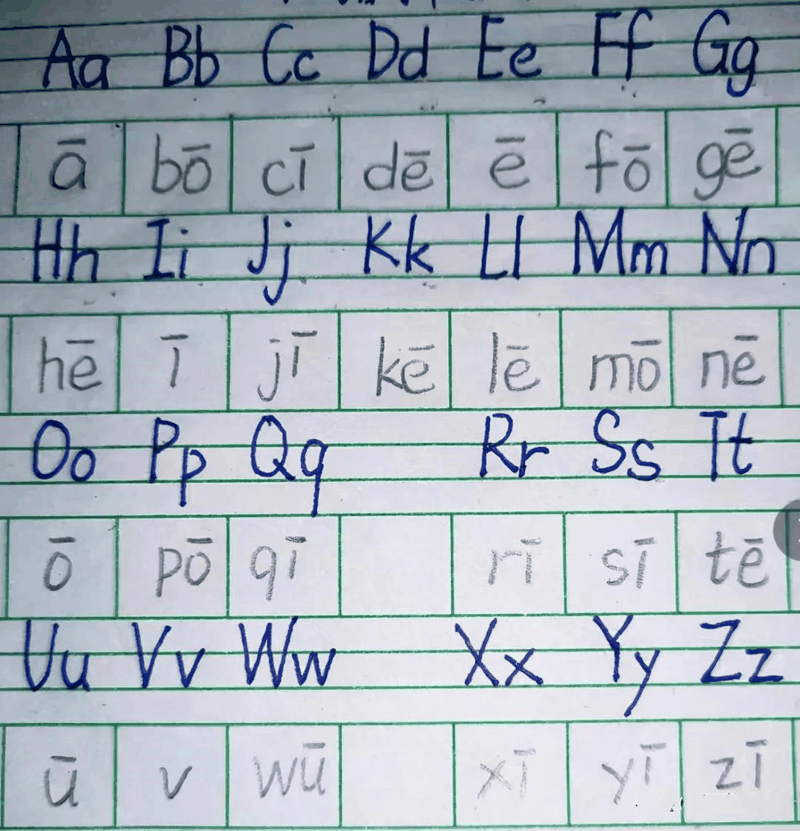 Aa Bb Cc Dd Ee Ff Gg
ā bō cī dē ē fō gē
Hh Ii Jj Kk Ll Mm Nn
hē ī jī kē lē mō nē
Oo Pp Qq Rr Ss Tt
ō pō qī rī sī tē
Uu Vv Ww Xx Yy Zz
ū v wū xī yī zī